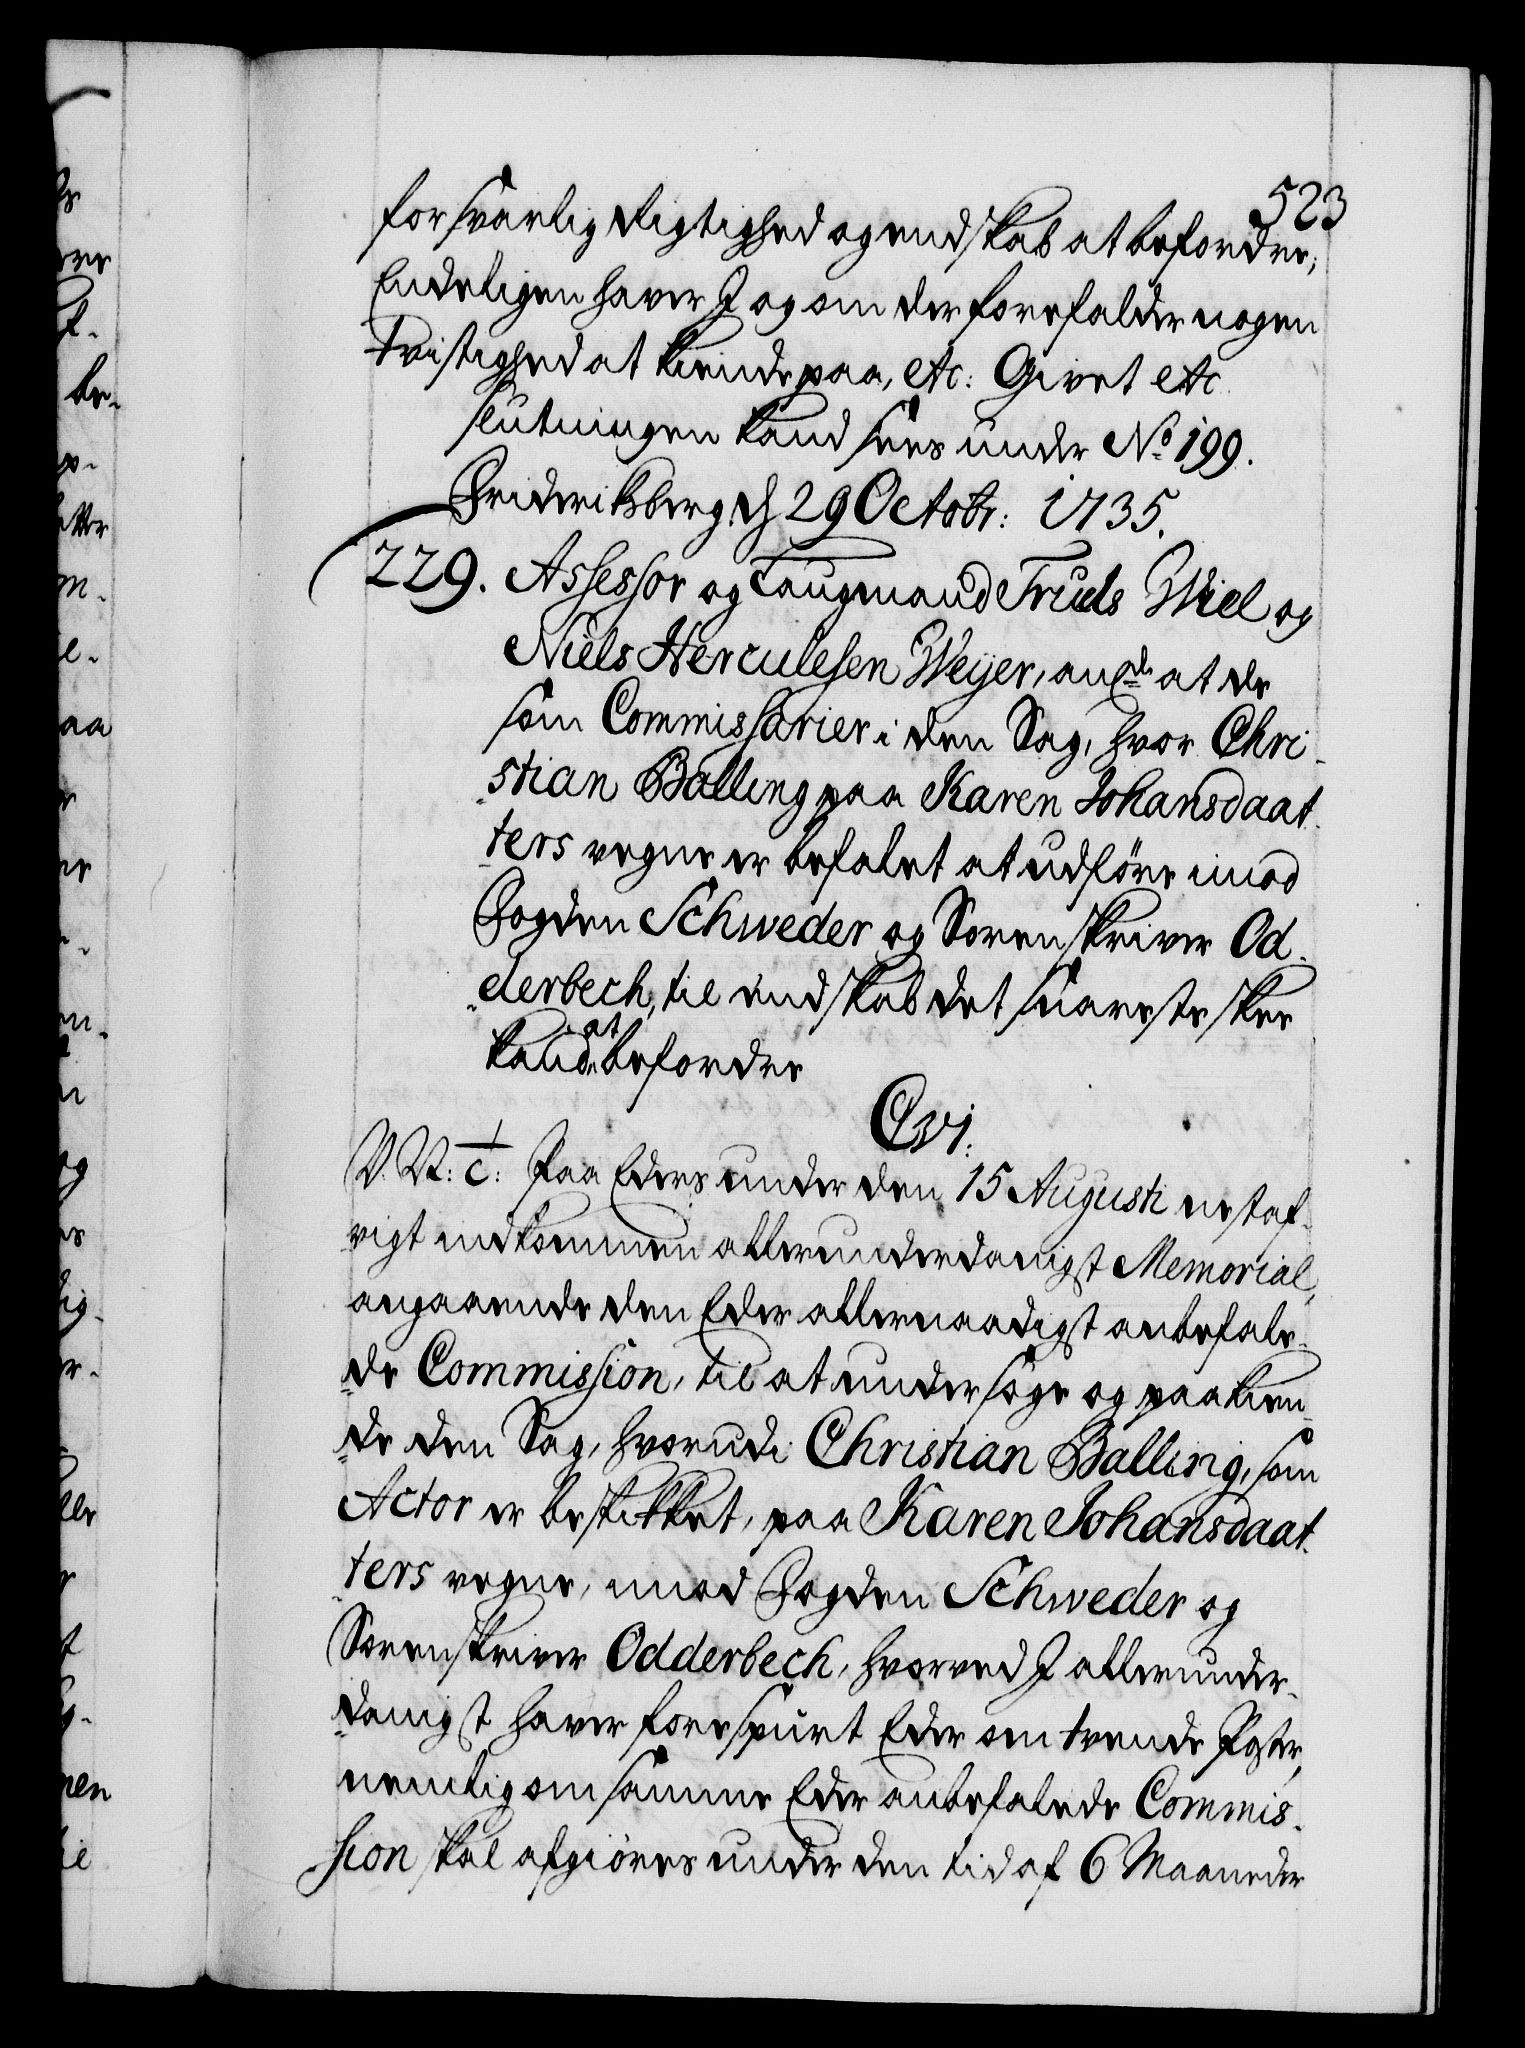 523
forsvarlig Rigtighed og endskab at befordre;
Endeligen haver I og om der forefalder nogen
Tvistighed at kiende paa, etc: Givet etc
slutningen kand sees under No 199.
Friderichsberg d 29 Octobr: 1735.
229. Assessor og Laugmand Truels Wiel og
Niels Herculesen Weyer, ang at de
som Commissarier i den Sag, hvor Chri-
stian Balling paa Karen Johansdaat-
ters vegne er befalet at udføre imod
Fogden Schweder og Sorenskriver Od-
derbech, til endskab det snareste skee
kand at befordre
C 6ti.
V. Vt: C: Paa Eders under den 15 Augusti nestaf-
vigt indkommen allerunderdanigst Memorial,
angaaende den Eder allernaadigst anbefale-
de Commission, til at undersøge og paakien-
de den Sag, hvorudi Christian Balling, som
Actor er beskikket, paa Karen Johansdaat-
ters vegne, imod Fogden Schweder og
Sorenskriver Odderbech, hvorved I allerunder-
danigst haver forespurt Eder om trende Poster,
nemlig om samme Eder anbefalede Commis-
sion skal afgiøres under den tid af 6 Maaneder